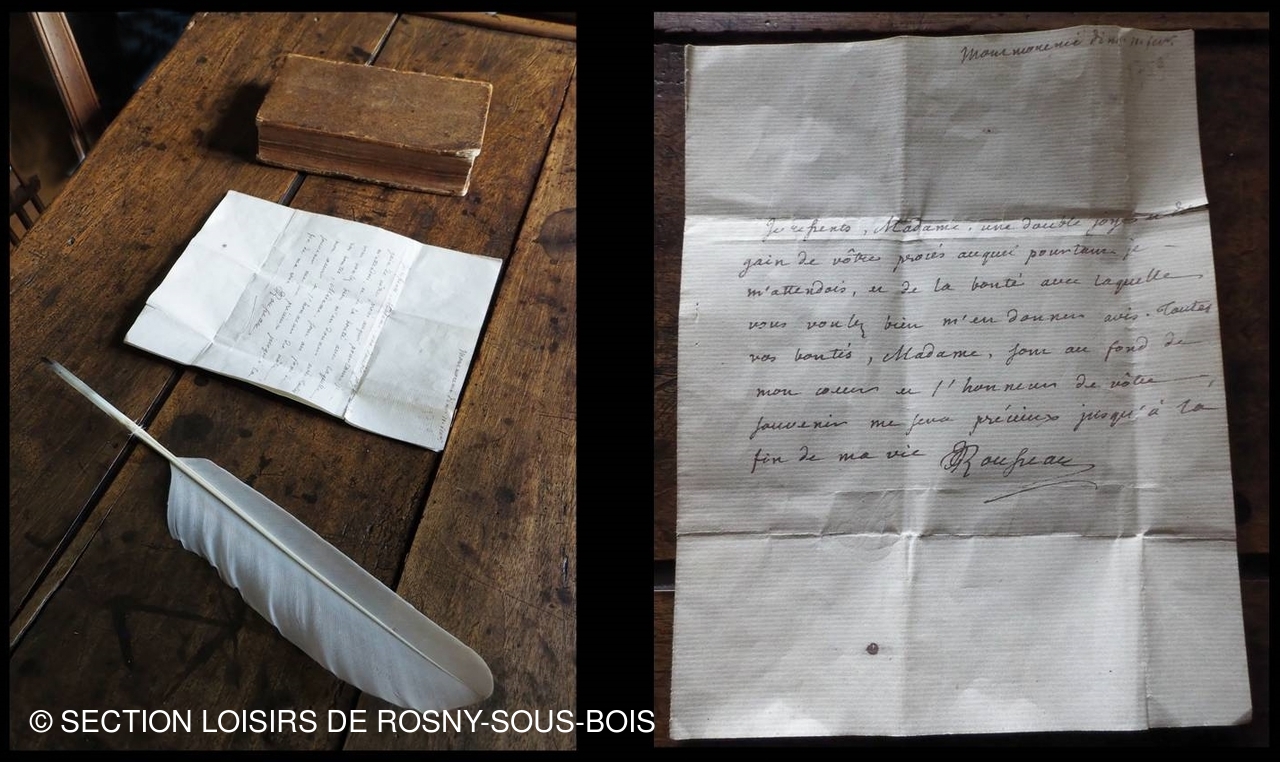 Montmorenci
Je ressens, Madame, une double joye du
gain de vôtre procès auquel pourtant je
m'attendois, et de la bonté avec laquelle
vous voulez bien m'en donner avis. Toutes
vos bontés, Madame, sont au fond de
mon coeur et l'honneur de vôtre
souvenir me sera précieux jusqu'à la
fin de ma vie Rousseau
© SECTION LOISIRS DE ROSNY-SOUS-BOIS